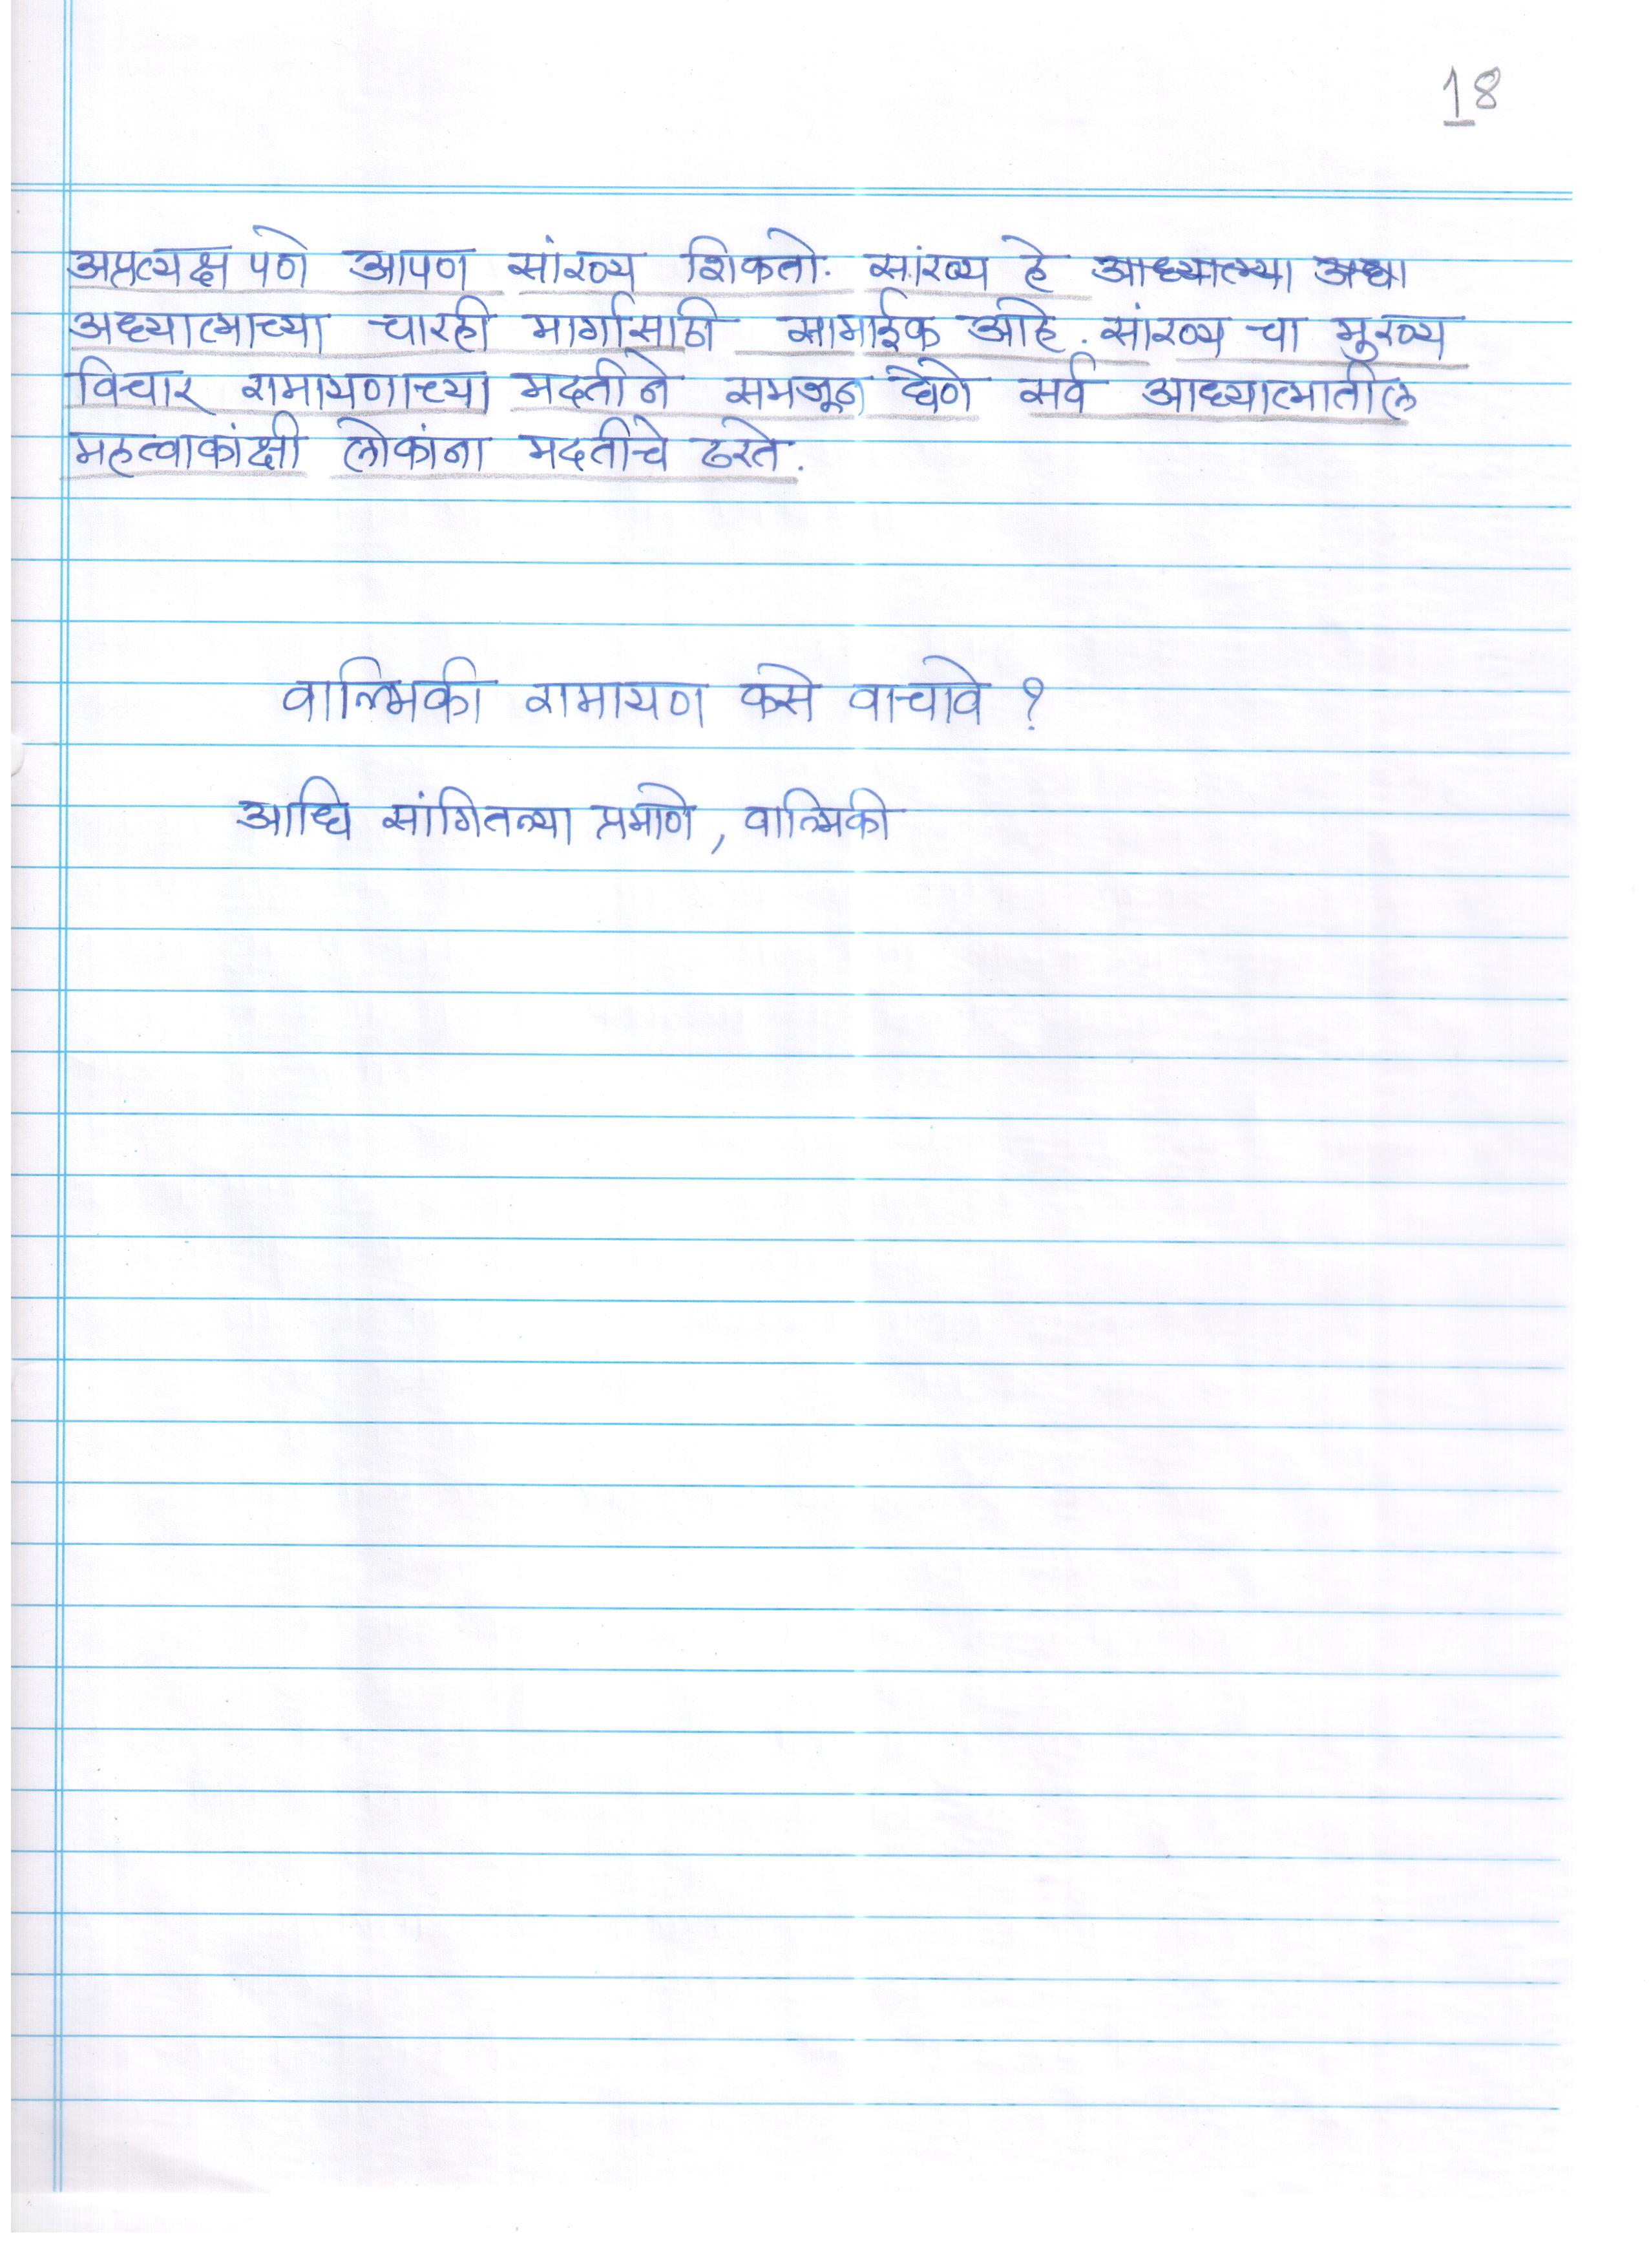 18
अप्रत्यक्ष पणे आपण सांख्य शिकतो. सांख्य हे आध्यात्म्या अध्या
अध्यात्माच्या चारही मार्गासाठी सामाईक आहे. सांख्य चा मुख्य
विचार रामायणाच्या मदतीने समजून घेणे सर्व आध्यात्मातील
महत्वाकांक्षी लोकांना मदतीचे ठरते.
वाल्मिकी रामायण कसे वाचावे ?
आधि सांगितल्या प्रमाणे, वाल्मिकी